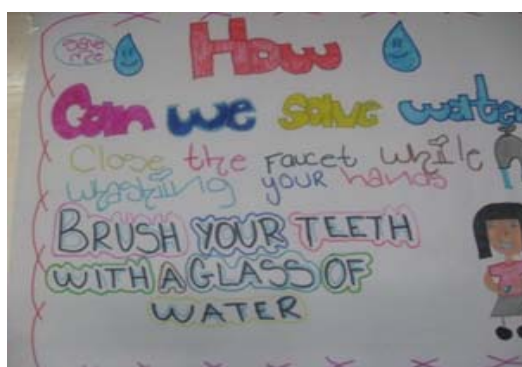 Save
me
How
Can we save water
Close the Faucet while
washing your hands
BRUSH YOUR TEETH
WITH A GLASS OF
WATER